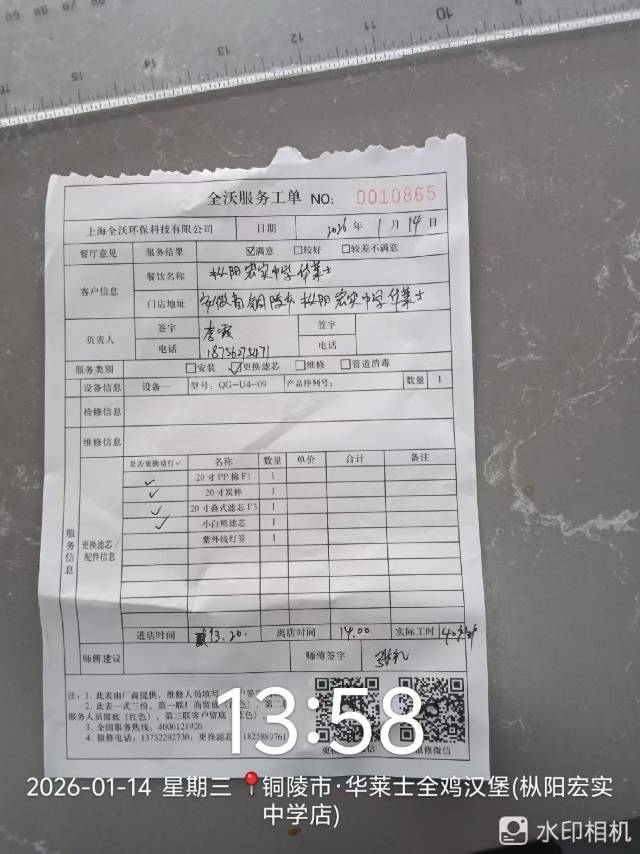 16 15 14 13 12 11 10 9
全沃服务工单 NO: 0010865
上海全沃环保科技有限公司 日期 2026 年 1 月 14 日
餐厅意见 服务结果 ☑满意 □较好 □较差不满意
客户信息 餐饮名称 枞阳宏实中学华莱士
门店地址 安徽省铜陵市枞阳宏实中学华莱士
负责人 签字 李 签字
电话 18756275471 电话
服务类别 □安装 ☑更换滤芯 □维修 □管道消毒
设备信息 设备一 型号: QG-U4-09 产品序列号: 数量 1
检修信息
维修信息
服务信息 更换滤芯/配件信息
是否更换请打✓ 名称 数量 单价 合计 备注
✓ 20寸PP棉F1 1
✓ 20寸炭棒 1
✓ 20寸叠式滤芯F3 1
✓ 小白熊滤芯 1
紫外线灯管 1
进店时间 13.20. 离店时间 14.00 实际工时 40分钟
师傅建议 师傅签字
注: 1. 此表由厂商提供、维修人员填写
2. 此表一式三份, 第一联厂商留底(白色), 第二联
服务人员留底(红色), 第三联客户留底
3. 全国服务热线: 4006121926
4. 报修电话: 13732292730, 更换滤芯 1825889761
更换 微信 报修微信
13:58
2026-01-14 星期三 铜陵市·华莱士全鸡汉堡(枞阳宏实
中学店)
水印相机